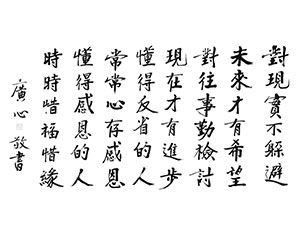 對現實不躲避
未來才有希望
對往事勤檢討
現在才有進步
懂得反省的人
常常心存感恩
懂得感恩的人
時時惜福惜緣
廣心敬書